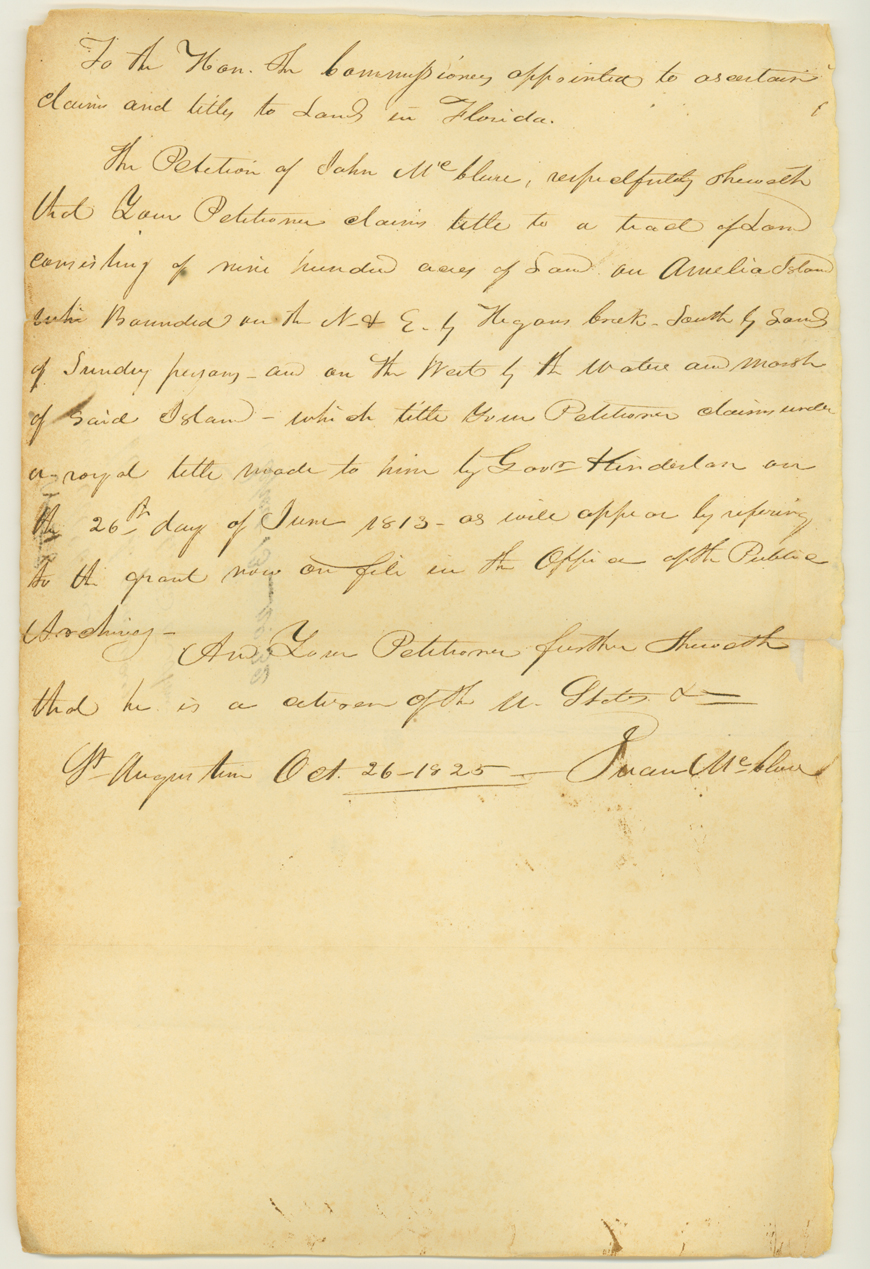 To the Hon. the Commissioners appointed to ascertain
claims and titles to Lands in Florida.
The Petition of John McClure, respectfully sheweth
that Your Petitioner claims title to a tract of Land
consisting of nine hundred acres of Land on Amelia Island
Bounded on the N. & E. by Hegans Creek - South by Lands
of Sundry persons - and on the West by the Waters and Marsh
of said Island - which title Your Petitioner claims under
a royal title made to him by Govr Kindelan on
the 26th day of June 1813 - as will appear by refering
to the grant now on file in the Office of the Public
Archives -
And Your Petitioner further sheweth
that he is a citizen of the U. States &c
St Augustine Oct. 26 - 1825 - Juan McClure